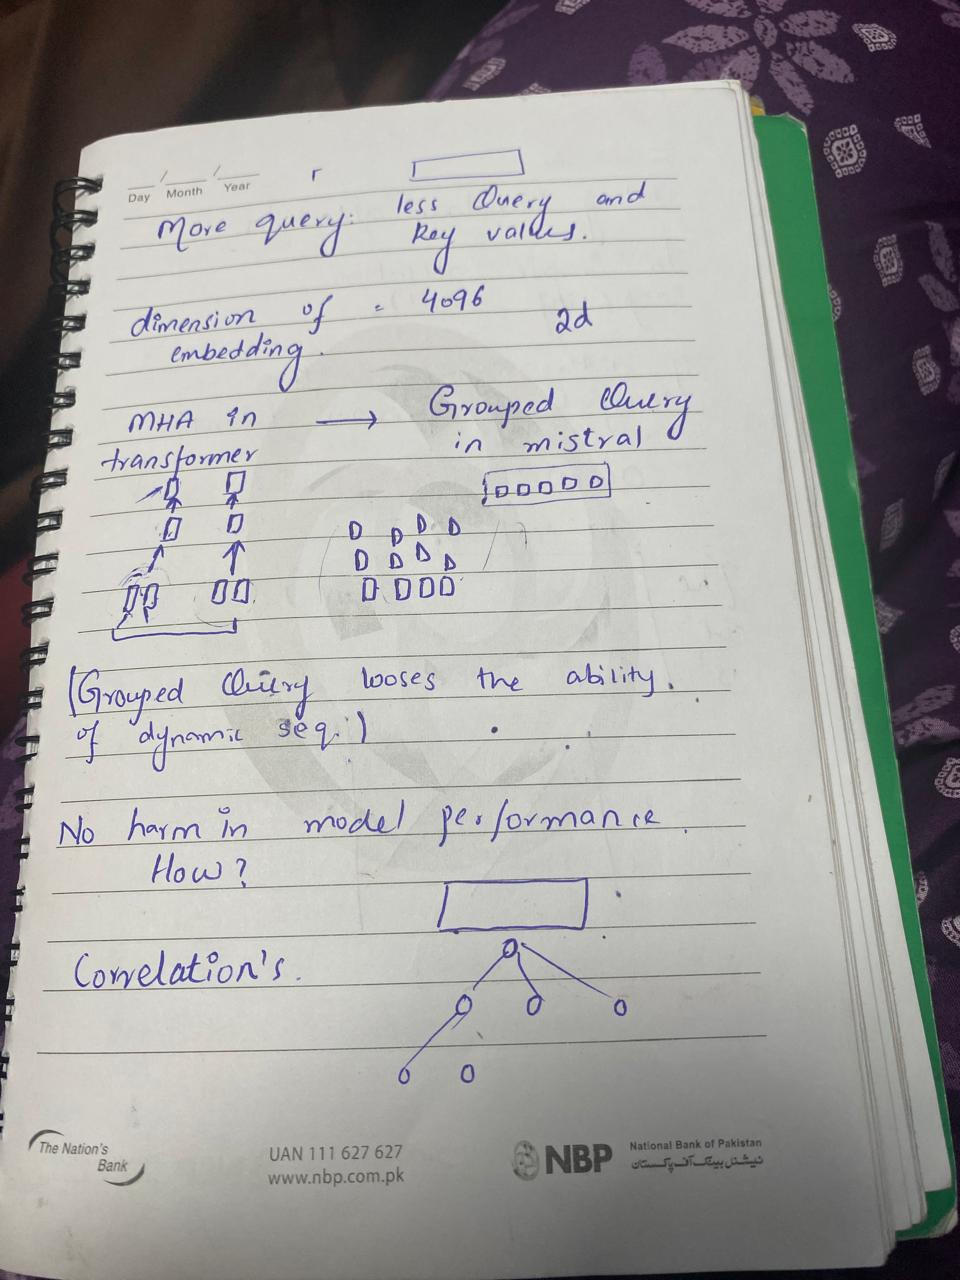 Day / Month / Year
r
More query: less Query and
Key values.
dimension of = 4096
embedding. 2d
MHA in → Grouped Query
transformer in mistral
(Grouped Query looses the ability.
of dynamic seq.)
No harm in model performance.
How?
Correlation's.
The Nation's
Bank
UAN 111 627 627
www.nbp.com.pk
NBP
National Bank of Pakistan
نیشنل بینک آف پاکستان